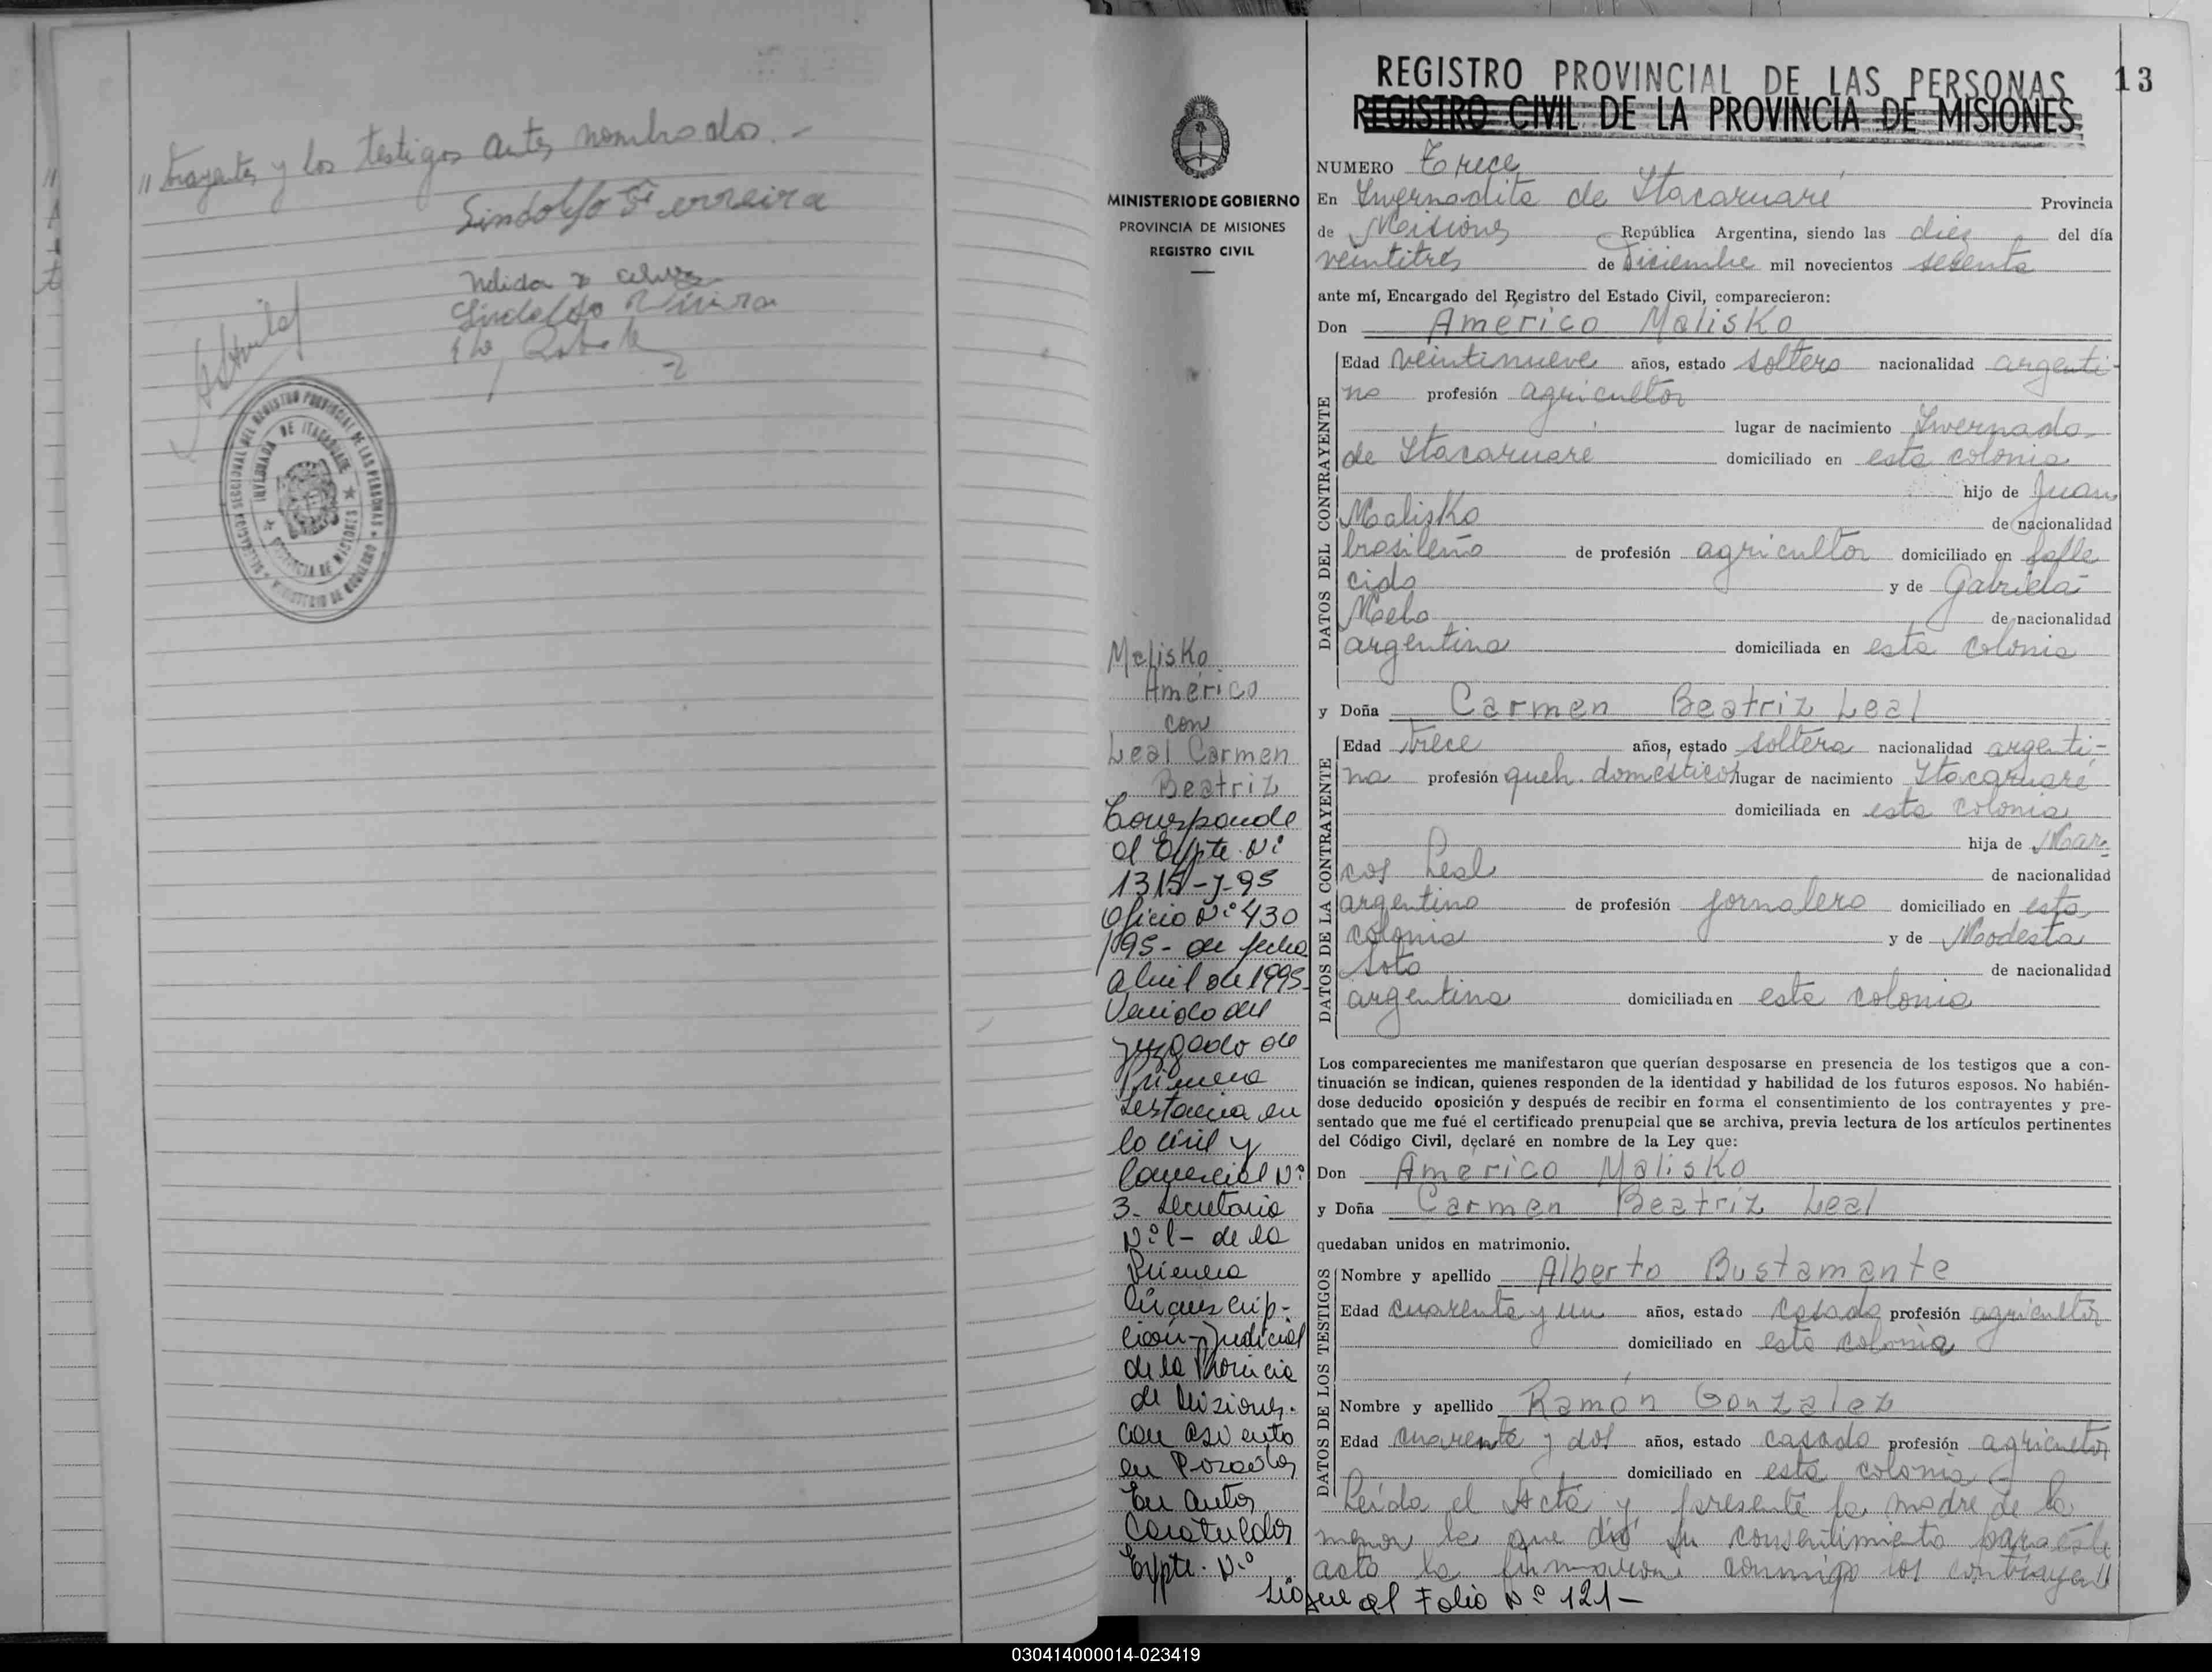 " trayentes y los testigos antes nombrados.-
Lindolfo Ferreira
Nelida
Lindolfo
MINISTERIO DE GOBIERNO
REGISTRO PROVINCIAL DE LAS PERSONAS
INVERNADA DE ITACARUARE
PROVINCIA DE MISIONES
MINISTERIO DE GOBIERNO
PROVINCIA DE MISIONES
REGISTRO CIVIL
Malisko
Américo
con
Leal Carmen
Beatriz
Corresponde
al Expte. Nº
1315-J-95
Oficio Nº 430
/95- de fecha
abril de 1995-
Venido del
Juzgado de
Primera
Instancia en
lo Civil y
Comercial Nº
3- Secretaria
Nº 1- de la
Primera
Circunscrip-
ción-Judicial
de la Provincia
de Misiones.
con asiento
en Posadas
En autos
Caratulados
Expte. Nº
Sigue al Folio Nº 121-
13
REGISTRO PROVINCIAL DE LAS PERSONAS
REGISTRO CIVIL DE LA PROVINCIA DE MISIONES
NUMERO Trece
En Invernadita de Itacaruaré Provincia
de Misiones República Argentina, siendo las diez del día
veintitres de Diciembre mil novecientos setenta
ante mí, Encargado del Registro del Estado Civil, comparecieron:
Don Américo Malisko
DATOS DEL CONTRAYENTE
Edad veintinueve años, estado soltero nacionalidad argenti-
no profesión agricultor
lugar de nacimiento Invernada
de Itacaruaré domiciliado en esta colonia
hijo de Juan
Malisko de nacionalidad
brasileño de profesión agricultor domiciliado en falle
cido y de Gabriela
Melo de nacionalidad
argentina domiciliada en esta colonia
y Doña Carmen Beatriz Leal
DATOS DE LA CONTRAYENTE
Edad trece años, estado soltera nacionalidad argenti-
na profesión queh. domésticos lugar de nacimiento Itacaruaré
domiciliada en esta colonia
hija de Mar-
cos Leal de nacionalidad
argentino de profesión jornalero domiciliado en esta
colonia y de Modesta
Soto de nacionalidad
argentina domiciliada en esta colonia
Los comparecientes me manifestaron que querían desposarse en presencia de los testigos que a con-
tinuación se indican, quienes responden de la identidad y habilidad de los futuros esposos. No habién-
dose deducido oposición y después de recibir en forma el consentimiento de los contrayentes y pre-
sentado que me fué el certificado prenupcial que se archiva, previa lectura de los artículos pertinentes
del Código Civil, declaré en nombre de la Ley que:
Don Américo Malisko
y Doña Carmen Beatriz Leal
quedaban unidos en matrimonio.
DATOS DE LOS TESTIGOS
Nombre y apellido Alberto Bustamante
Edad cuarenta y un años, estado casado profesión agricultor
domiciliado en esta colonia
Nombre y apellido Ramón Gonzalez
Edad cuarenta y dos años, estado casado profesión agricultor
domiciliado en esta colonia
Leída el Acta y presente la madre de la
menor la que dió su consentimiento para este
acto la firmaron conmigo los contrayen"
030414000014-023419